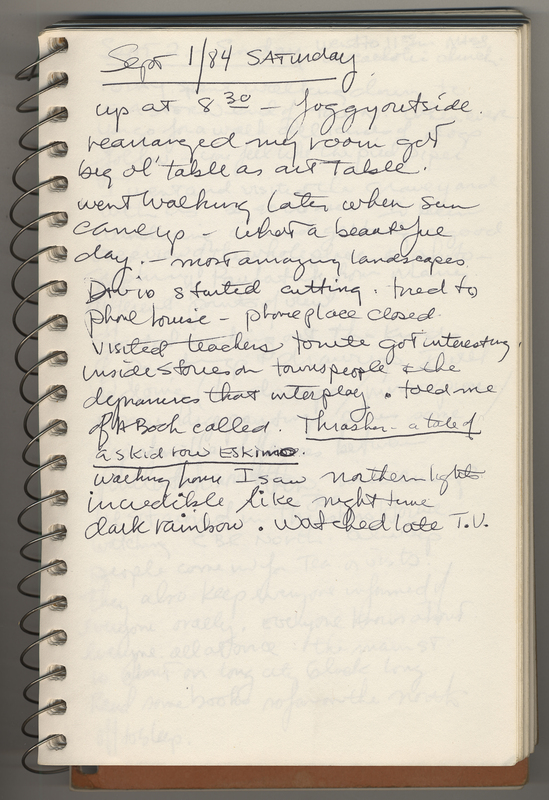 Sept 1/84 SATurday
up at 8 30 – foggy outside.
rearranged my room got
big ol' table as art table.
went walking later when sun
came up – what a beautiful
day. – most amazing landscapes
started cutting. tried to
phone Louise – phone place closed.
visited teachers tonite got interesting
inside stories on townspeople & the
dynamics that interplay. told me
of A Book called. Thrasher – a tale of
a skid row Eskimo.
walking home I saw northern lights
incredible like night time
dark rainbow. watched late T.V.